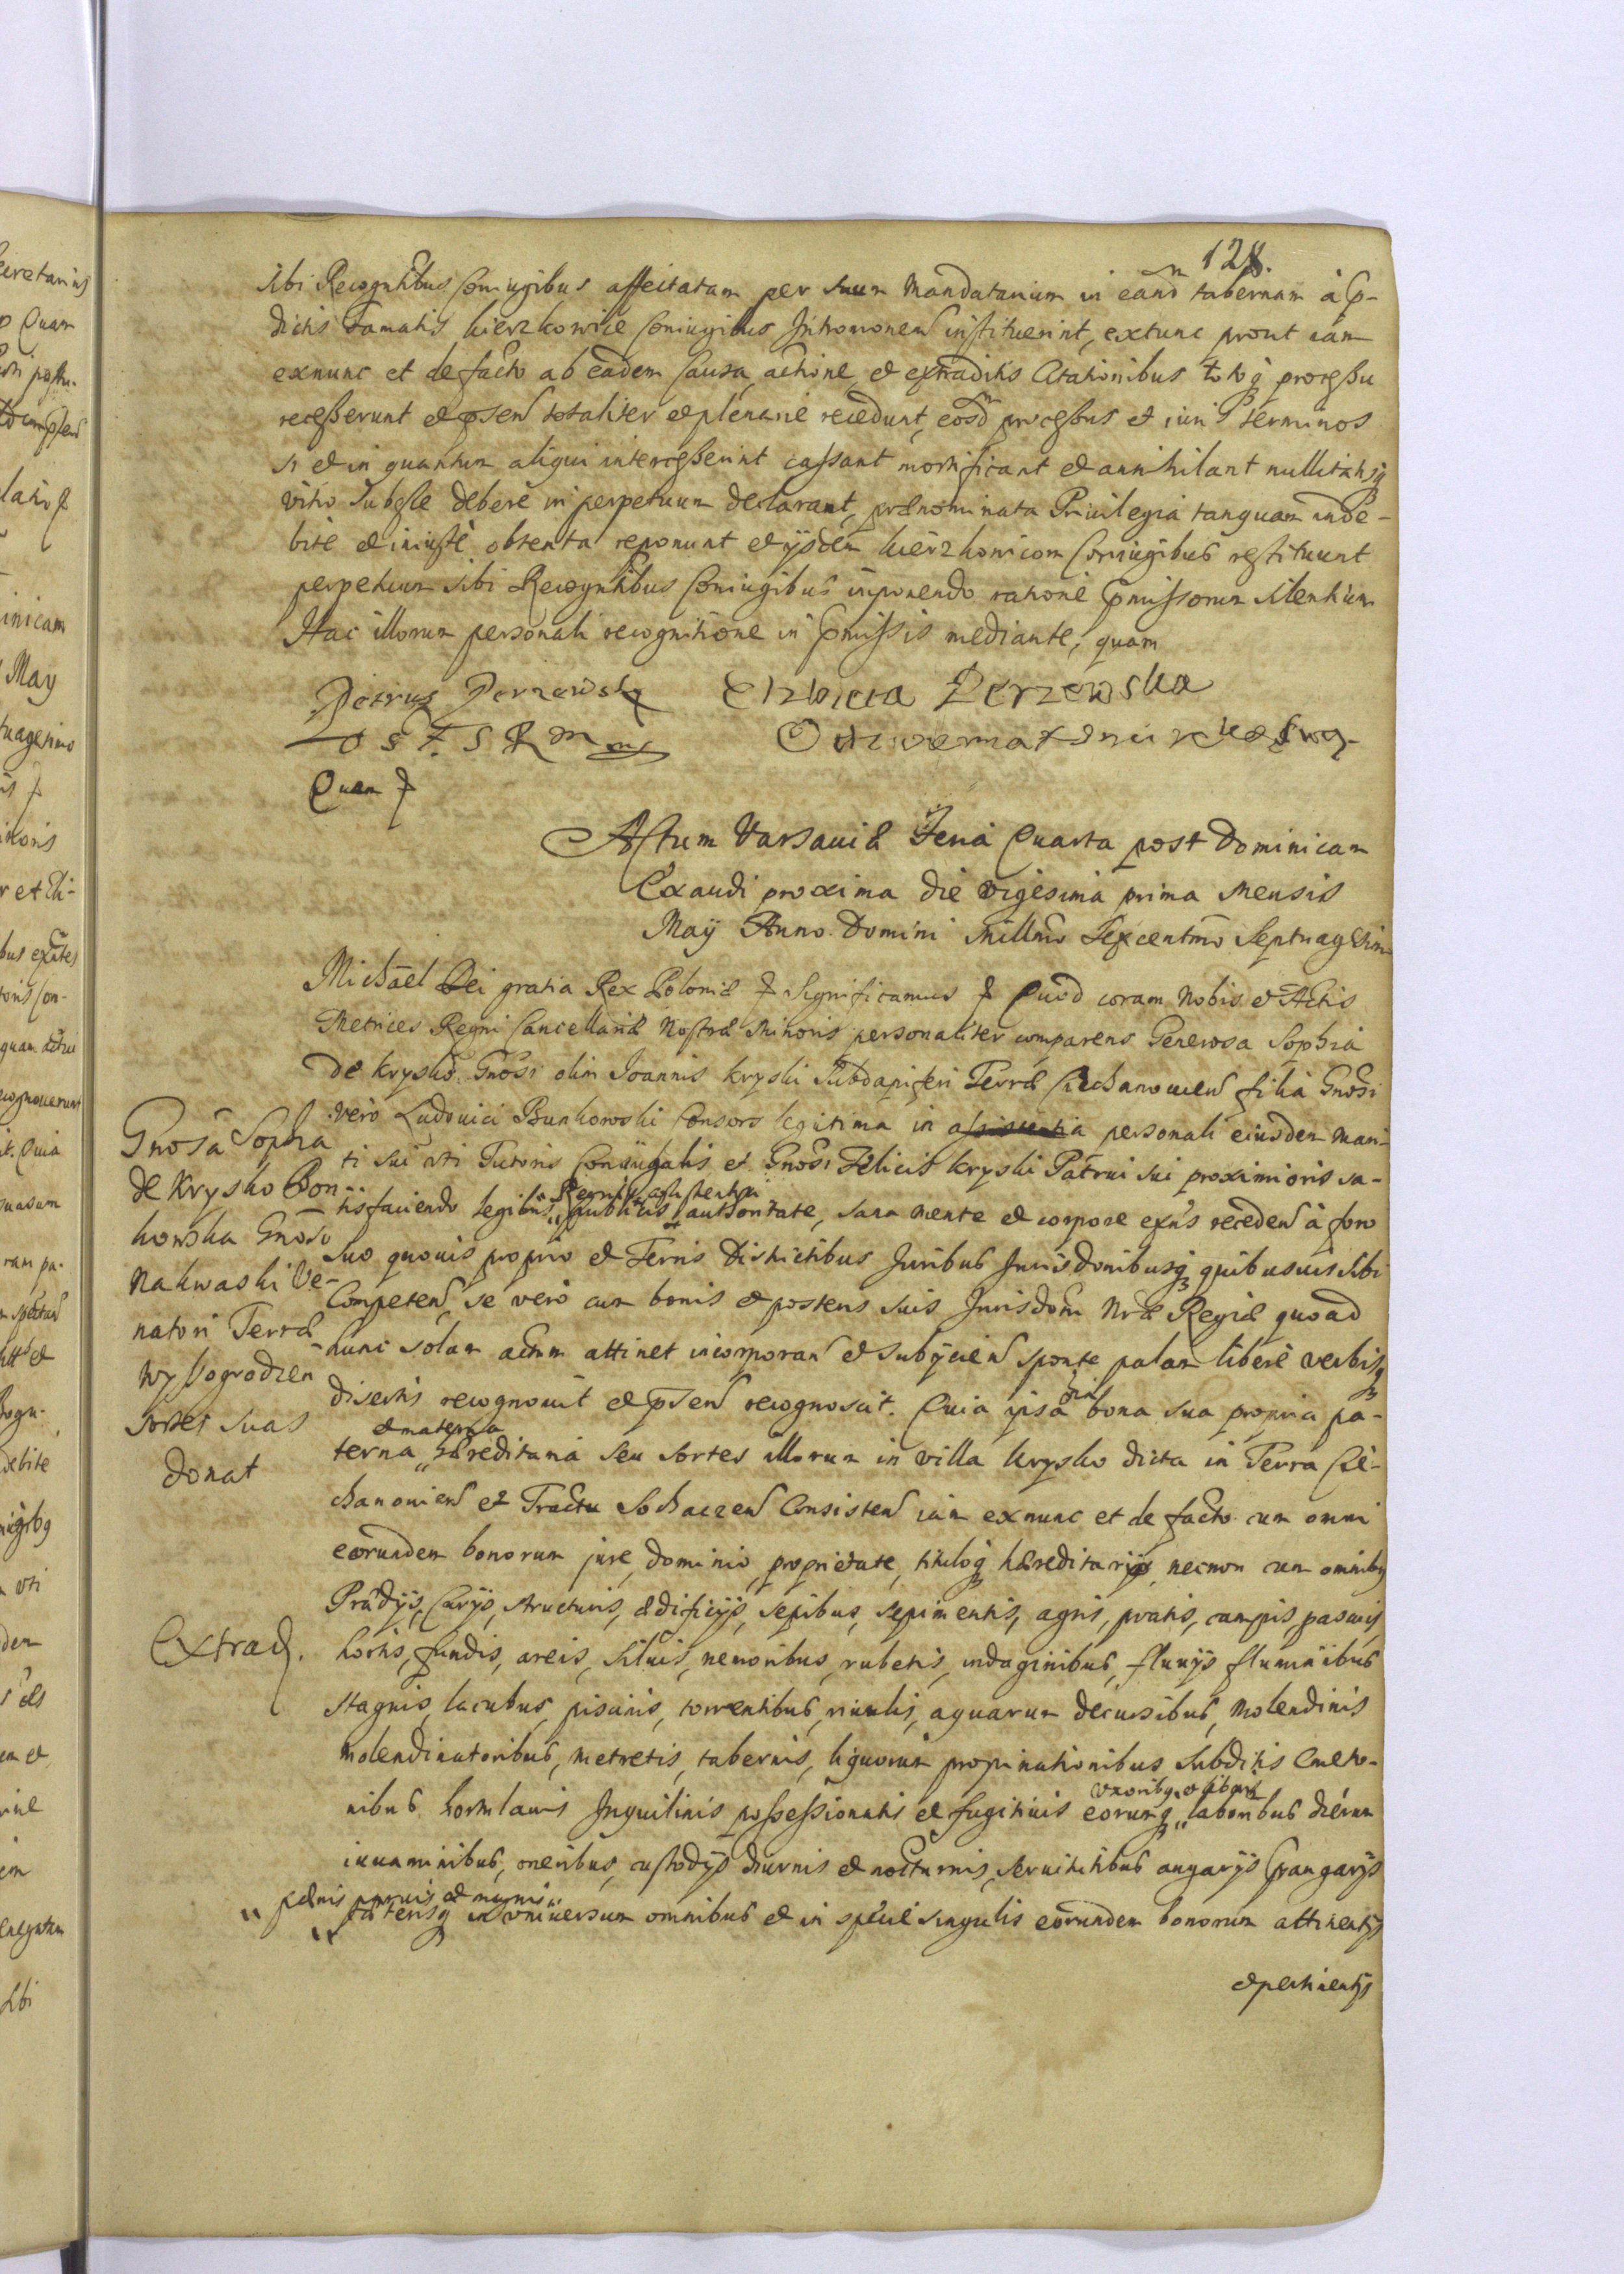 128.
sibi Recogntibus Coniugibus affectatam per suum Mandatarium in eand tabernam à p-
dictis Famatis Kierzkowskie Coniugibus Intromonem instituerint, extunc prout iam
exnunc et de facto ab eadem causa, actione et extraditis Citationibus totoq processu
recesserunt et psen totaliter et plenarie recedunt, eosd processus et iuris terminos
si et in quantum aliqui intercesserint cassant mortificant et annihilant nullitatisq
vitio subesse debere in perpetuum declarant, prænominata Privilegia tanquam inde-
bite et iniuste obtenta reponunt et ijsdem Kierzkowicom Coniugibus restituunt
perpetuum sibi Recogntibus Coniugibus imponendo ratione pmissorum silentium
Hac illorum personali recognitione in pmissis mediante, quam
Petrus Perzewsky Elzbieta Perzewska
Quam
Actum Varsaviæ Feria Quarta post Dominicam
Exaudi proxima die vigesima prima Mensis
Maÿ Anno Domini Millmo Sexcentmo Septuagesimo
Michael Dei gratia Rex Poloniæ Significamus Quod coram Nobis et Actis
Metrices Regni Cancellariæ Nostræ Minoris personaliter comparens Generosa Sophia
de Krysko Gnosi olim Ioannis Kryski Subdapiferi Terræ Ciechanowien filia Gnosi
vero Ludovici Bunkowski Consors legitima in assistentia personali eiusdem Mari-
ti sui uti Tutoris Coniugalis et Gnosi Felicis Kryski Patrui sui proximioris sa-
tisfaciendo legibus Regni publicis authoritate, sana mente et corpore exns receden à foro
suo quovis proprio et Terris Districtibus Juribus Jurisdonibusq quibusvis sibi
Competen se vero cum bonis et posteris suis Jurisdoni Nræ Regiæ quoad
hunc solum actum attinet incorporan et subijcien sponte palam libere verbisq
disertis recognovit et psen recognoscit. Quia ipsa oia bona sua propria pa-
terna et materna hæreditaria seu sortes illorum in villa Krysko dicta in Terra Cie-
chanovien et Tractu Sochaczen Consisten iam exnunc et de facto cum omni
eorundem bonorum jure, dominio, proprietate, tituloq hæreditario, necnon cum omnibus
Prædijs, Curijs, structuris, ædificijs, sepibus, sepimentis, agris, pratis, campis, pascuis
hortis, fundis, areis, silvis, nemoribus, rubetis, indaginibus, fluvijs fluminibus
stagnis, lacubus, piscinis, torrentibus, rivulis, aquarum decursibus, Molendinis
molendinatoribus, metretis, tabernis, liquorum propinationibus subditis Cmeto-
nibus hortulanis Inquilinis possessionatis et fugitivis eorumq uxoribq et liberis laboribus dierum
iuvaminibus, oneribus, custodijs diurnis et nocturnis, servitutibus angarijs prangarijs
pænis parvis et magnis cæterisq in universum omnibus et in specie singulis eorundem bonorum attinentijs
et pertinentijs
Gnosa Sophia
de Krysko Bon-
kowska Gnoso
Nakwaski Ve-
natori Terræ
Wyssogrodzen
sortes suas
donat
Extrad.